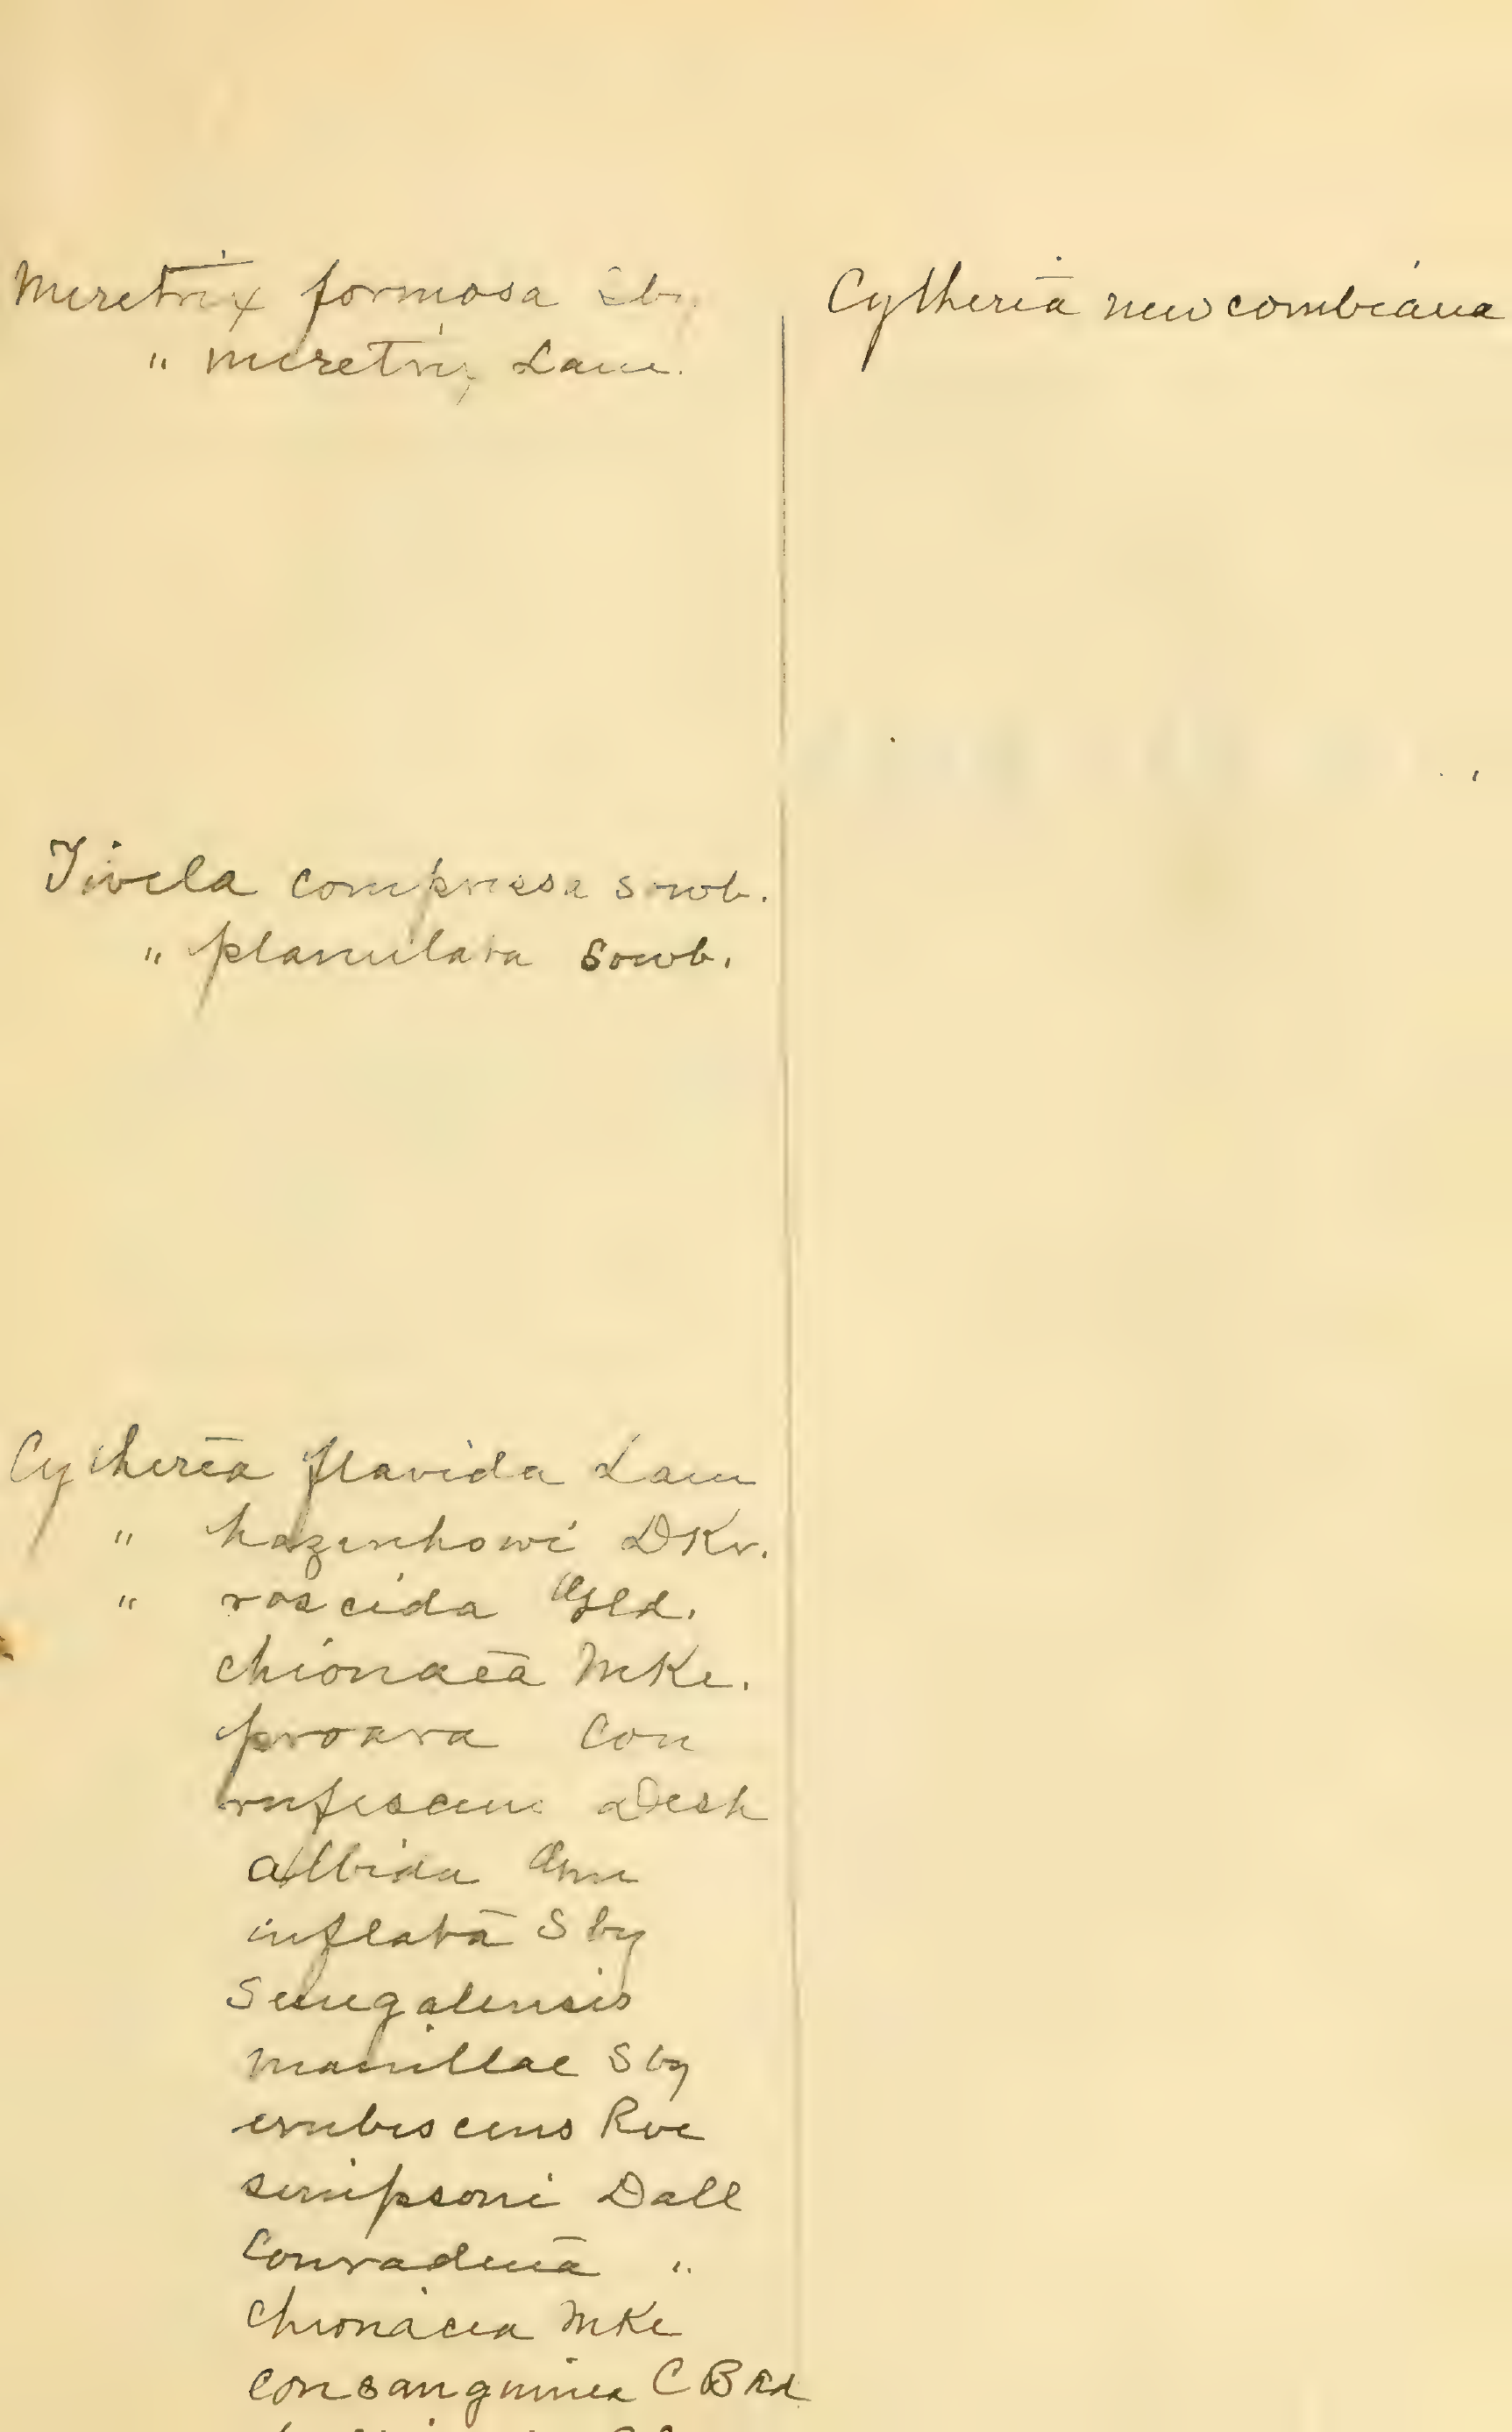 Meretrix formosa Sby.
" meretrix Lam.
Cytheria newcombiana
Tivela compressa Sowb.
" planulata Sowb.
Cytheria flavida Lam
" hazenhowi DKr.
" roscida Gld.
chionaea MKe.
proava Con
rufescens Desh
albida Gm
inflata Sby
Senegalensis
manillae Sby
erubiscens Rve
simpsoni Dall
Conradina "
chionacea MKe
consanguinea C B Ad